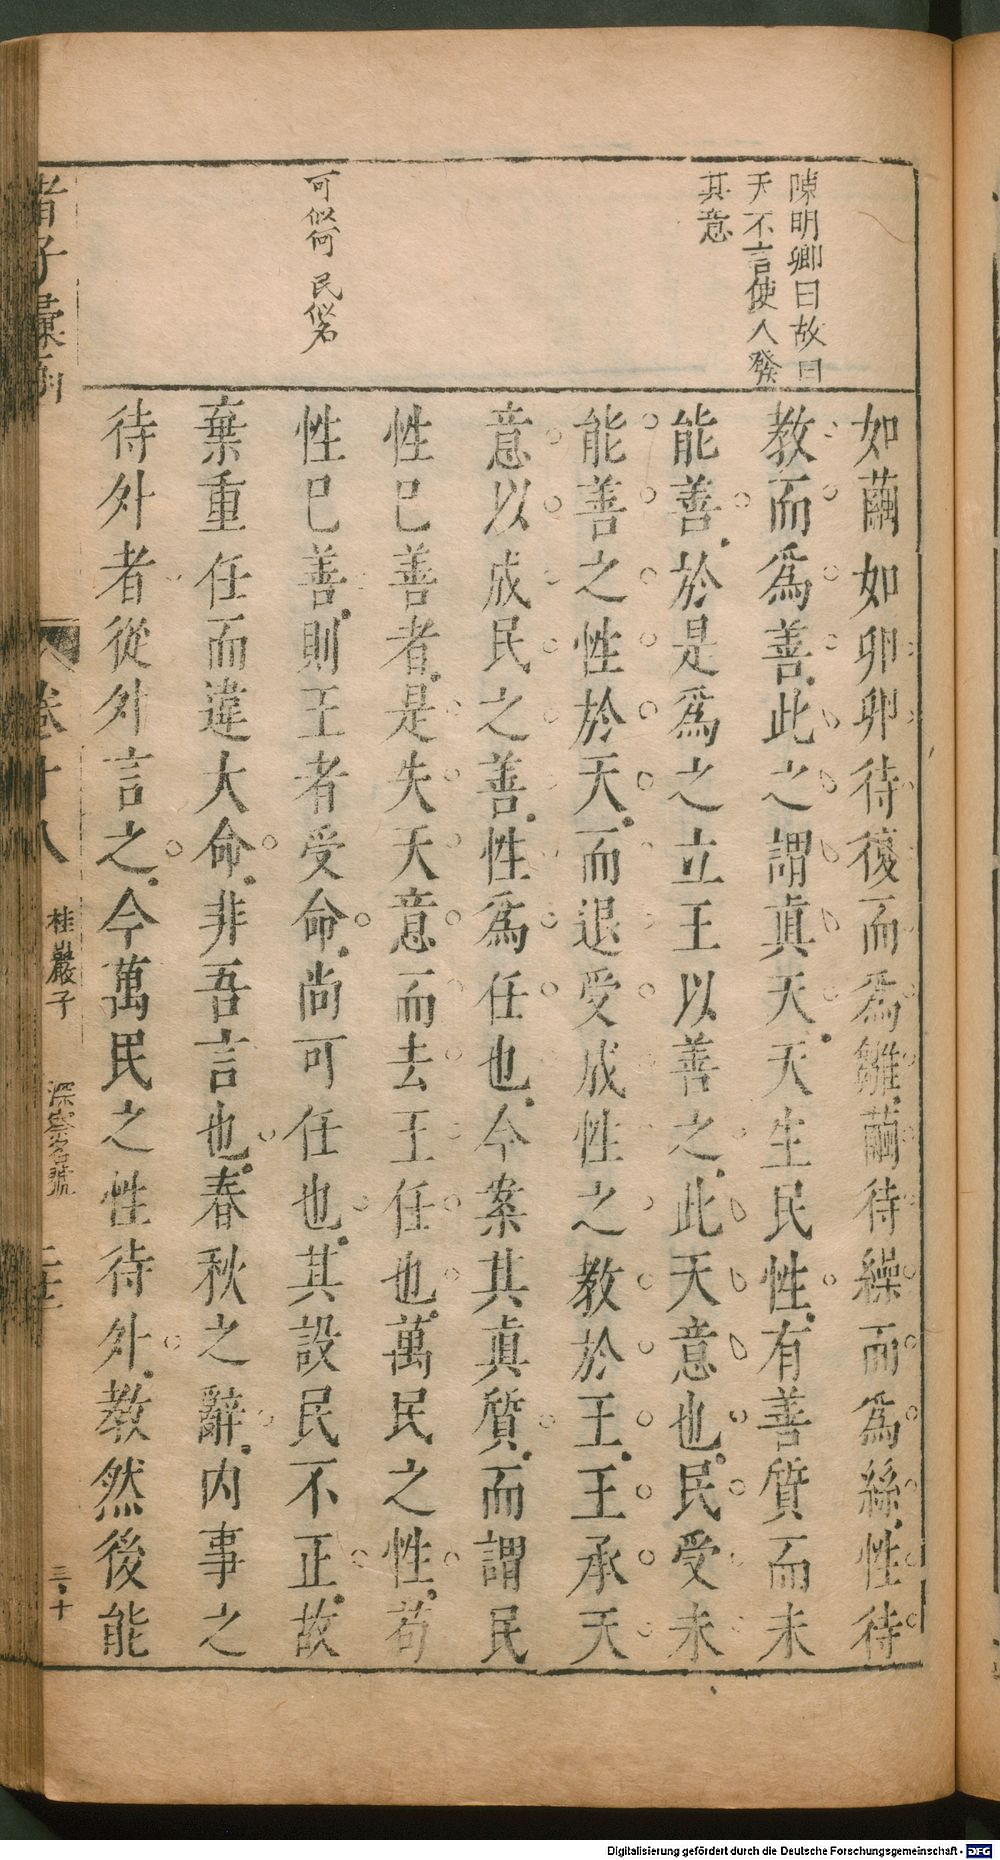 陳明卿曰故曰
天不言使人發
其意
可似何 民似名
如繭如卵卵待復而爲雛繭待繰而爲絲性待
教而爲善此之謂眞天天生民性有善質而未
能善於是爲之立王以善之此天意也民受未
能善之性於天而退受成性之教於王王承天
意以成民之善性爲任也今案其眞質而謂民
性已善者是失天意而去王任也萬民之性苟
性已善則王者受命尚可任也其設民不正故
棄重任而違大命非吾言也春秋之辭內事之
待外者從外言之今萬民之性待外教然後能
諸子彙函
卷十八
桂巖子
深察名號
三十
Digitalisierung gefördert durch die Deutsche Forschungsgemeinschaft - DFG